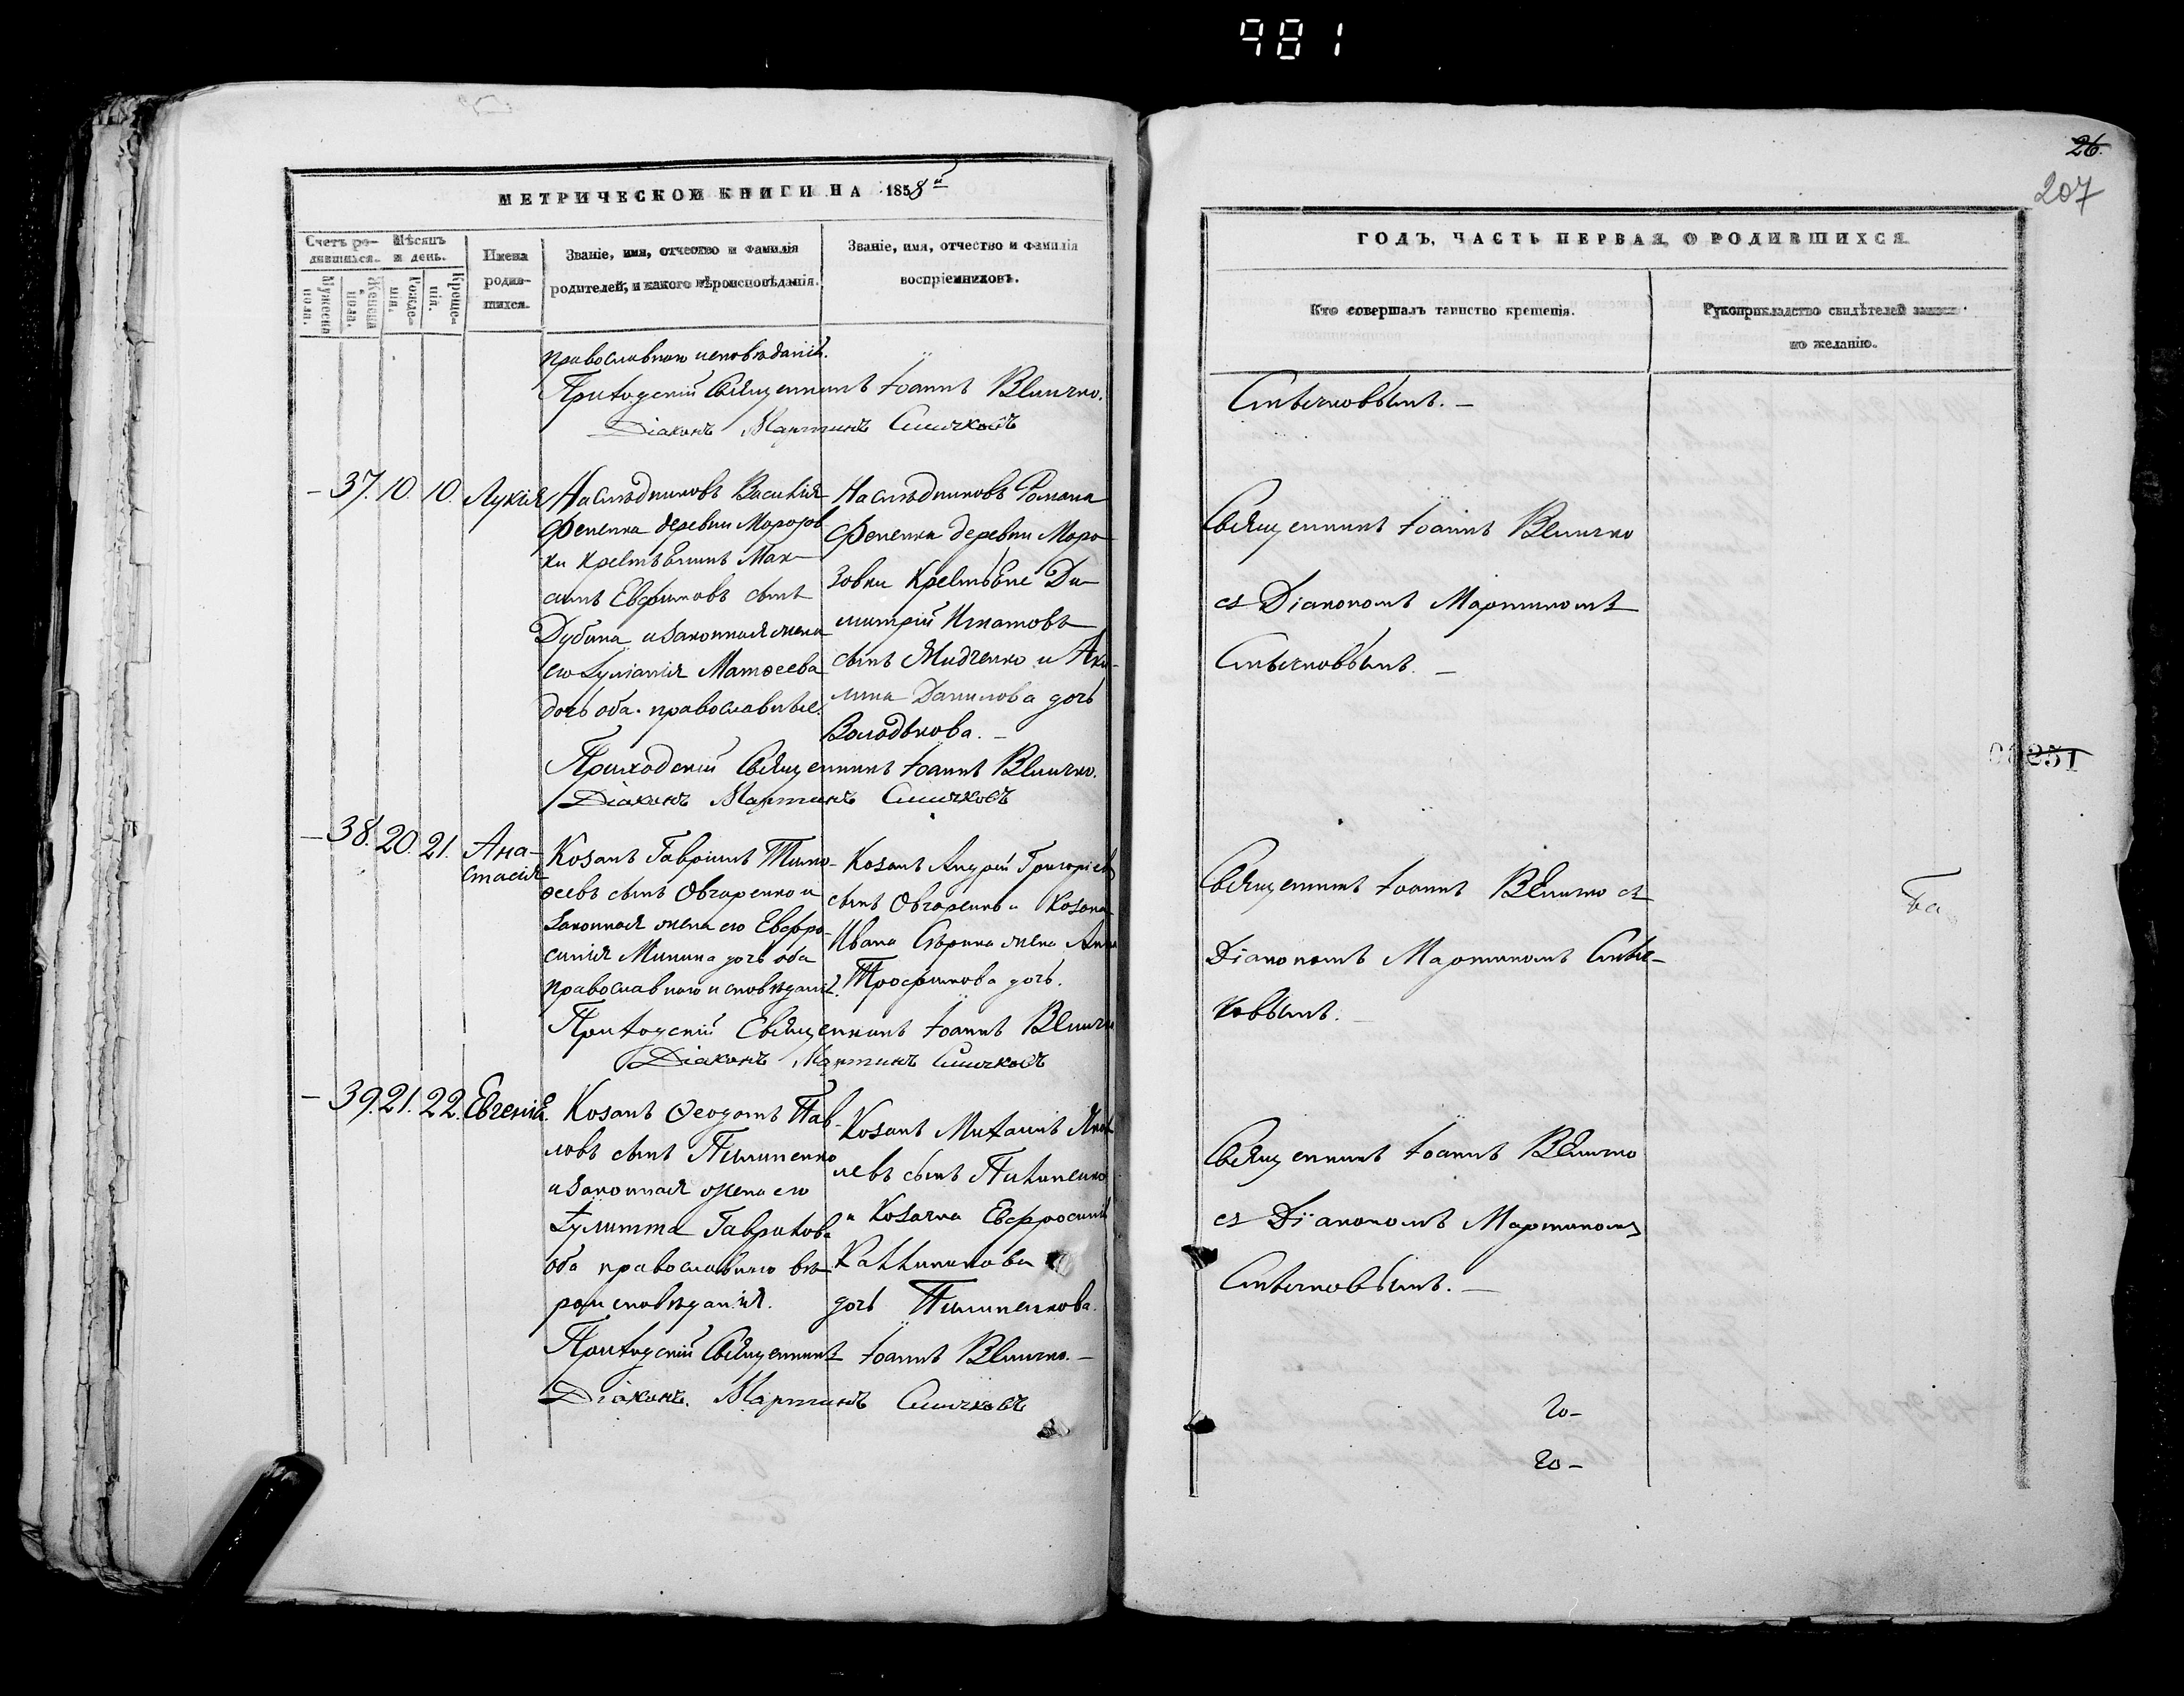 981
26.
207
МЕТРИЧЕСКОЙ КНИГИ НА 1858й
Счетъ ро-
дившихся.
Мѣсяцъ
и день.
Мужеска
пола.
Женска
пола.
Рожде-
нія.
Креще-
нія.
Имена
родив-
шихся.
Званіе, имя, отчество и фамилія
родителей, и какого вѣроисповѣданія.
Званіе, имя, отчество и фамилія
воспріемниковъ.
православнаго исповѣданія.
Приходскій Священникъ Іоаннъ Величко.
Діаконъ Мартинъ
37. 10. 10. Лукія
Наслѣдниковъ Василія
Фененка деревни Морозов
ки Крестьянинъ Мак-
симъ Евфимовъ сынъ
Дубина и законная жена
его Іуліанія Матѳеева
дочь оба православные.
Наслѣдниковъ Романа
Фененка деревни Моро
зовки Крестьяне Ди-
митрій Игнатовъ
сынъ Мидченко и Аки-
лина Данилова дочь
Володькова. –
Приходскій Священникъ Іоаннъ Величко.
Діаконъ Мартинъ
38. 20. 21. Ана-
стасія
Козакъ Гавріилъ Тимо-
ѳеевъ сынъ Овчаренко и
законная жена его Евфро-
синія Минина дочь оба
православнаго исповѣданія.
Козакъ Андрей Григоріевъ
сынъ Овчаренко и Козака
Ивана жена Анна
Трофимова дочь.
Приходскій Священникъ Іоаннъ Величко
Діаконъ Мартинъ
39. 21. 22. Евгенія.
Козакъ Ѳеодотъ Пав-
ловъ сынъ Пилипенко
и законная жена его
Іулитта Гаврилова
оба православнаго вѣ-
роисповѣданія.
Козакъ Михаилъ Яков
левъ сынъ Пилипенко
и Козачка Евфросинія
Каллиникова
дочь Пилипенкова.
Приходскій Священникъ Іоаннъ Величко. –
Діаконъ Мартинъ
ГОДЪ, ЧАСТЬ ПЕРВАЯ, О РОДИВШИХСЯ.
Кто совершалъ таинство крещенія.
Рукоприкладство свидѣтелей записи
по желанію.
Священникъ Іоаннъ Величко
съ Діакономъ Мартиномъ
Священникъ Іоаннъ Величко съ
Діакономъ Мартиномъ
Священникъ Іоаннъ Величко
съ Діакономъ Мартиномъ